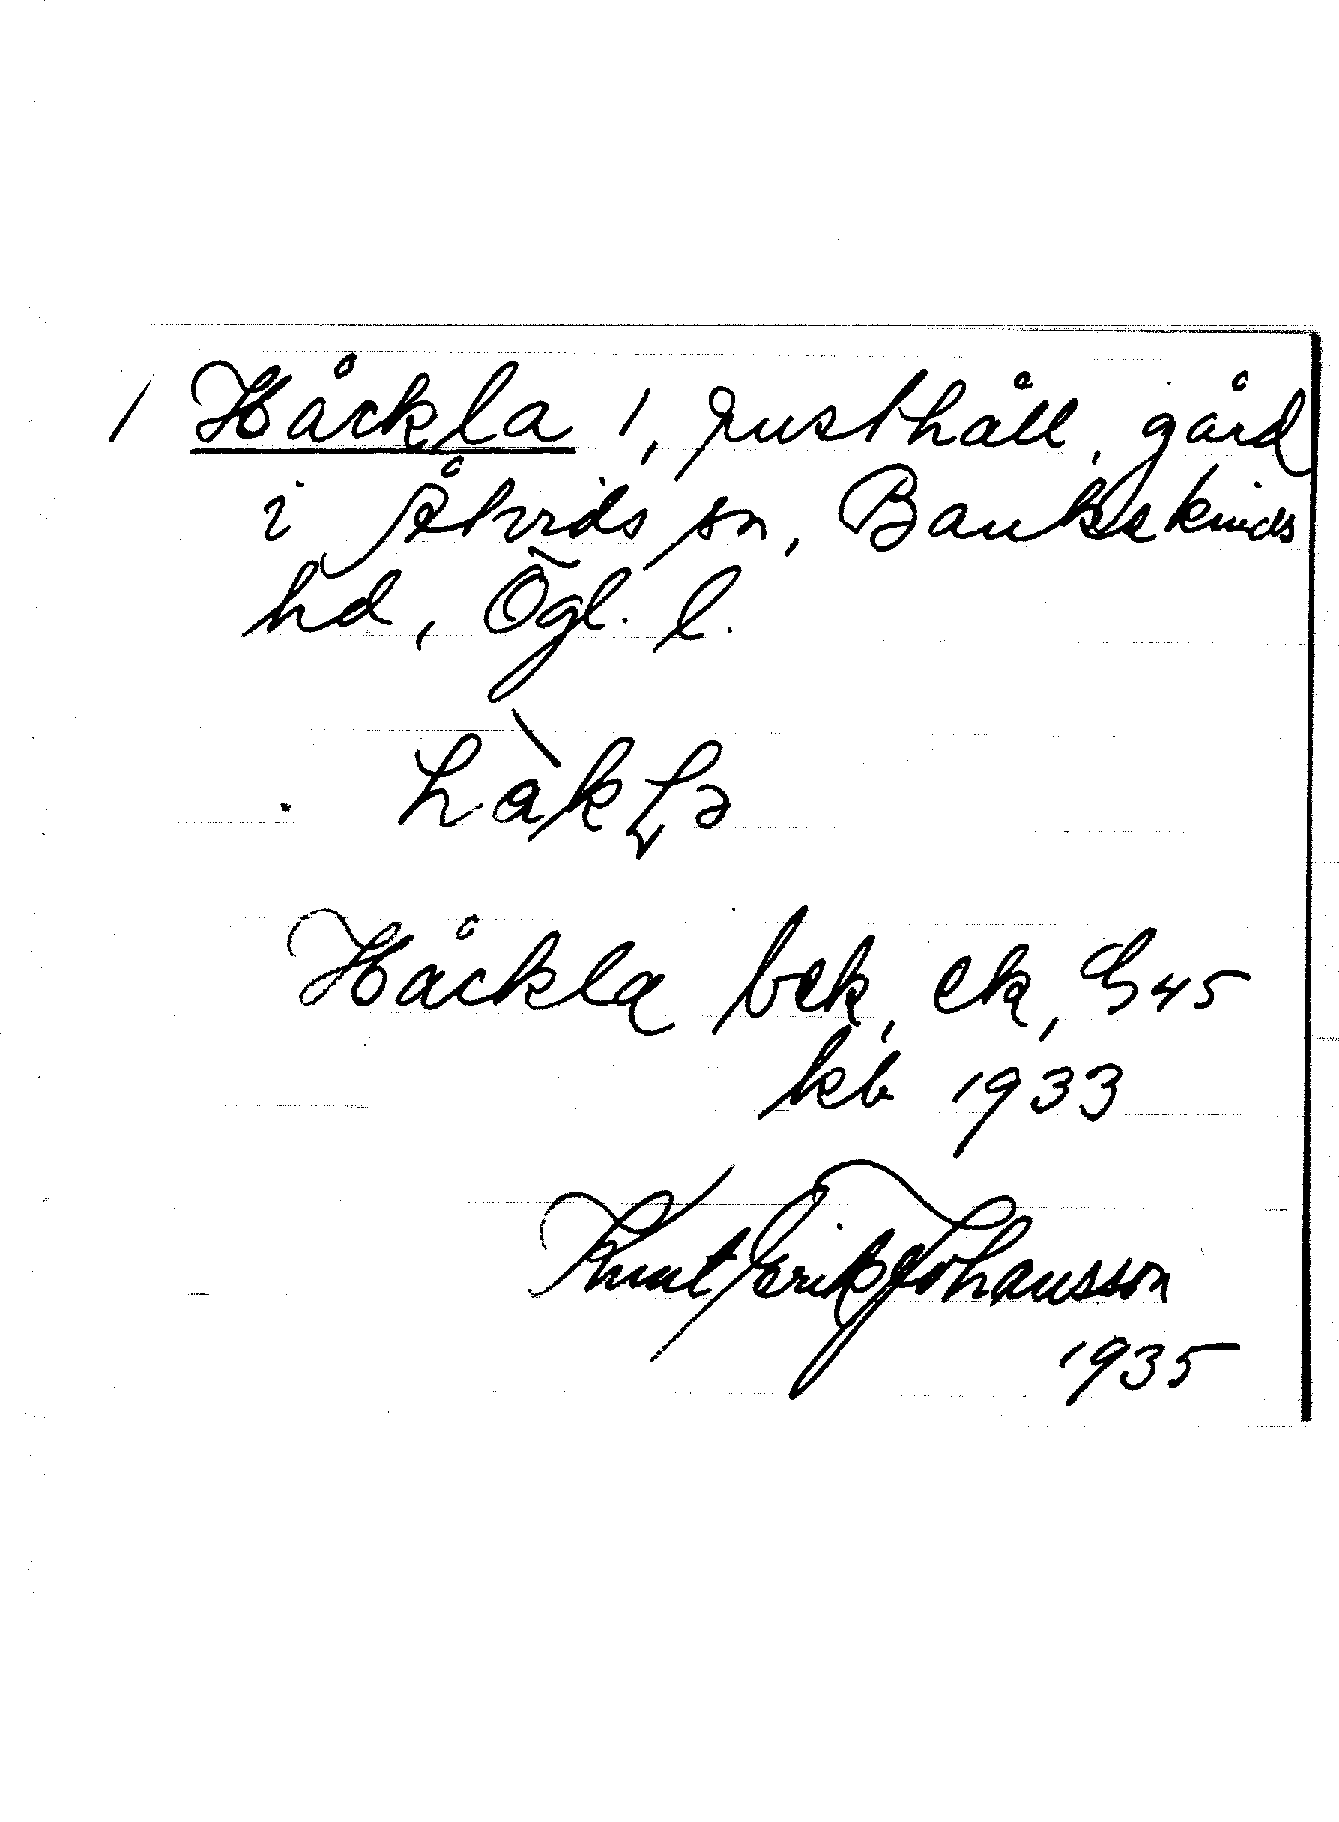 / Håckla 1, rusthåll, gård
i Åtvids sn, Bankekinds
hd, Ögl. l.
hàkḷə
Håckla bek, ek, G45
kb 1933
Knut Erik Johansson
1935